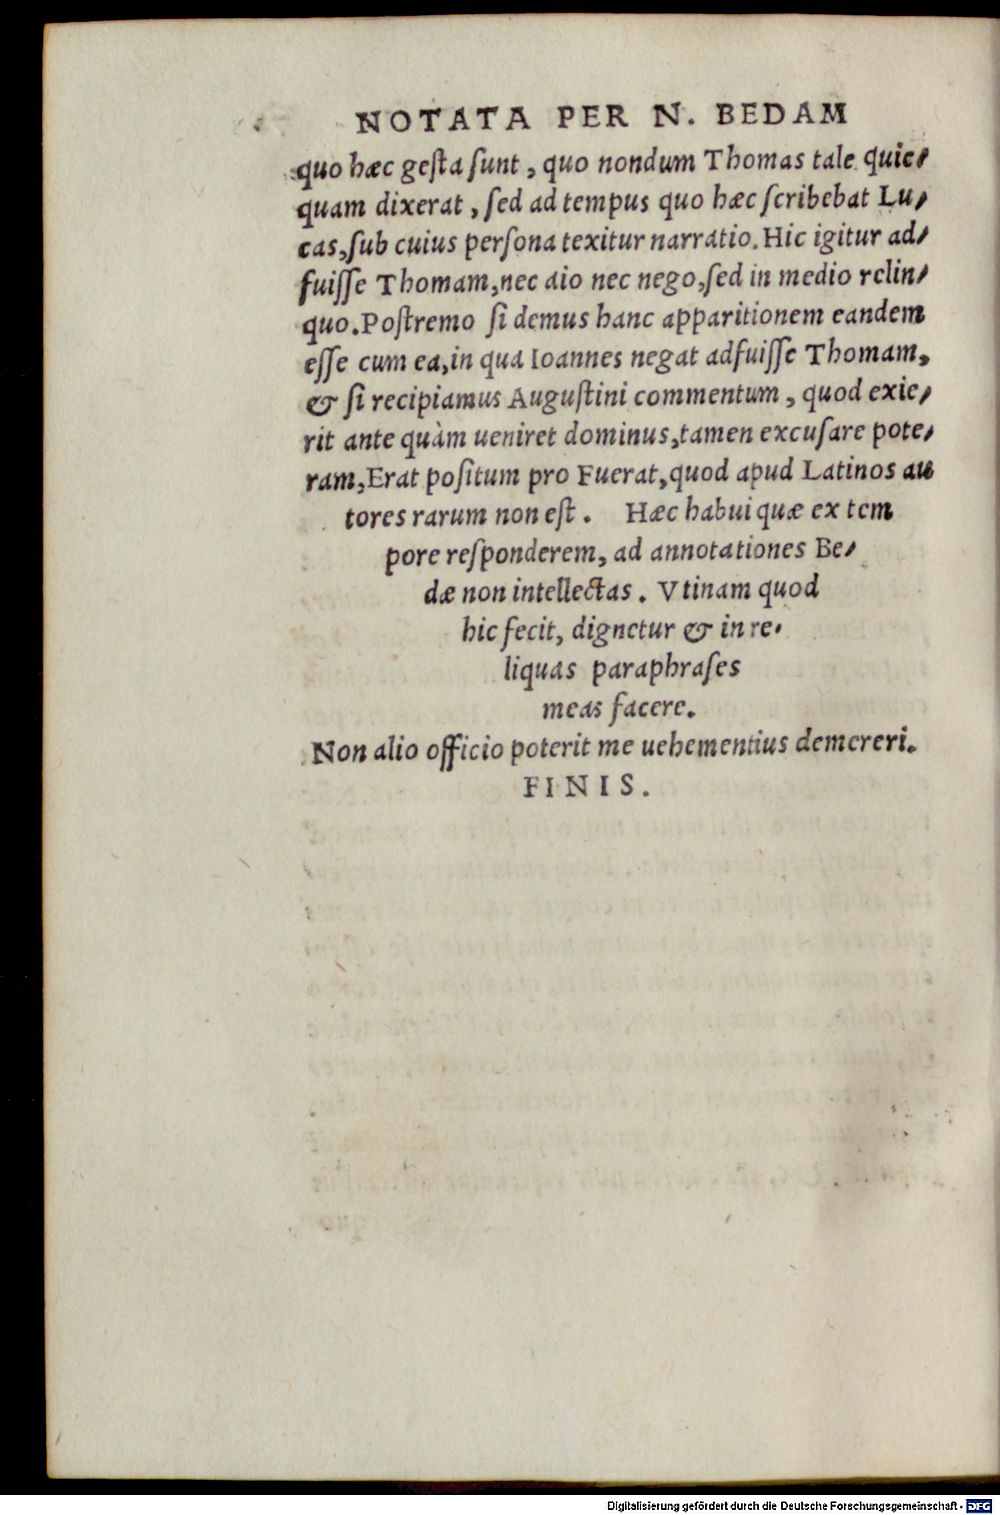 NOTATA PER N. BEDAM
quo hæc geſta ſunt, quo nondum Thomas tale quic⸗
quam dixerat, ſed ad tempus quo hæc ſcribebat Lu⸗
cas, ſub cuius perſona texitur narratio. Hic igitur ad⸗
fuiſſe Thomam, nec aio nec nego, ſed in medio relin⸗
quo. Poſtremo ſi demus hanc apparitionem eandem
eſſe cum ea, in qua Ioannes negat adfuiſſe Thomam,
& ſi recipiamus Auguſtini commentum, quod exie⸗
rit ante quàm ueniret dominus, tamen excuſare pote⸗
ram, Erat poſitum pro Fuerat, quod apud Latinos au
tores rarum non eſt. Hæc habui quæ ex tem
pore reſponderem, ad annotationes Be⸗
dæ non intellectas. Vtinam quod
hic fecit, dignetur & in re⸗
liquas paraphraſes
meas facere.
Non alio officio poterit me uehementius demereri.
FINIS.
Digitalisierung gefördert durch die Deutsche Forschungsgemeinschaft - DFG